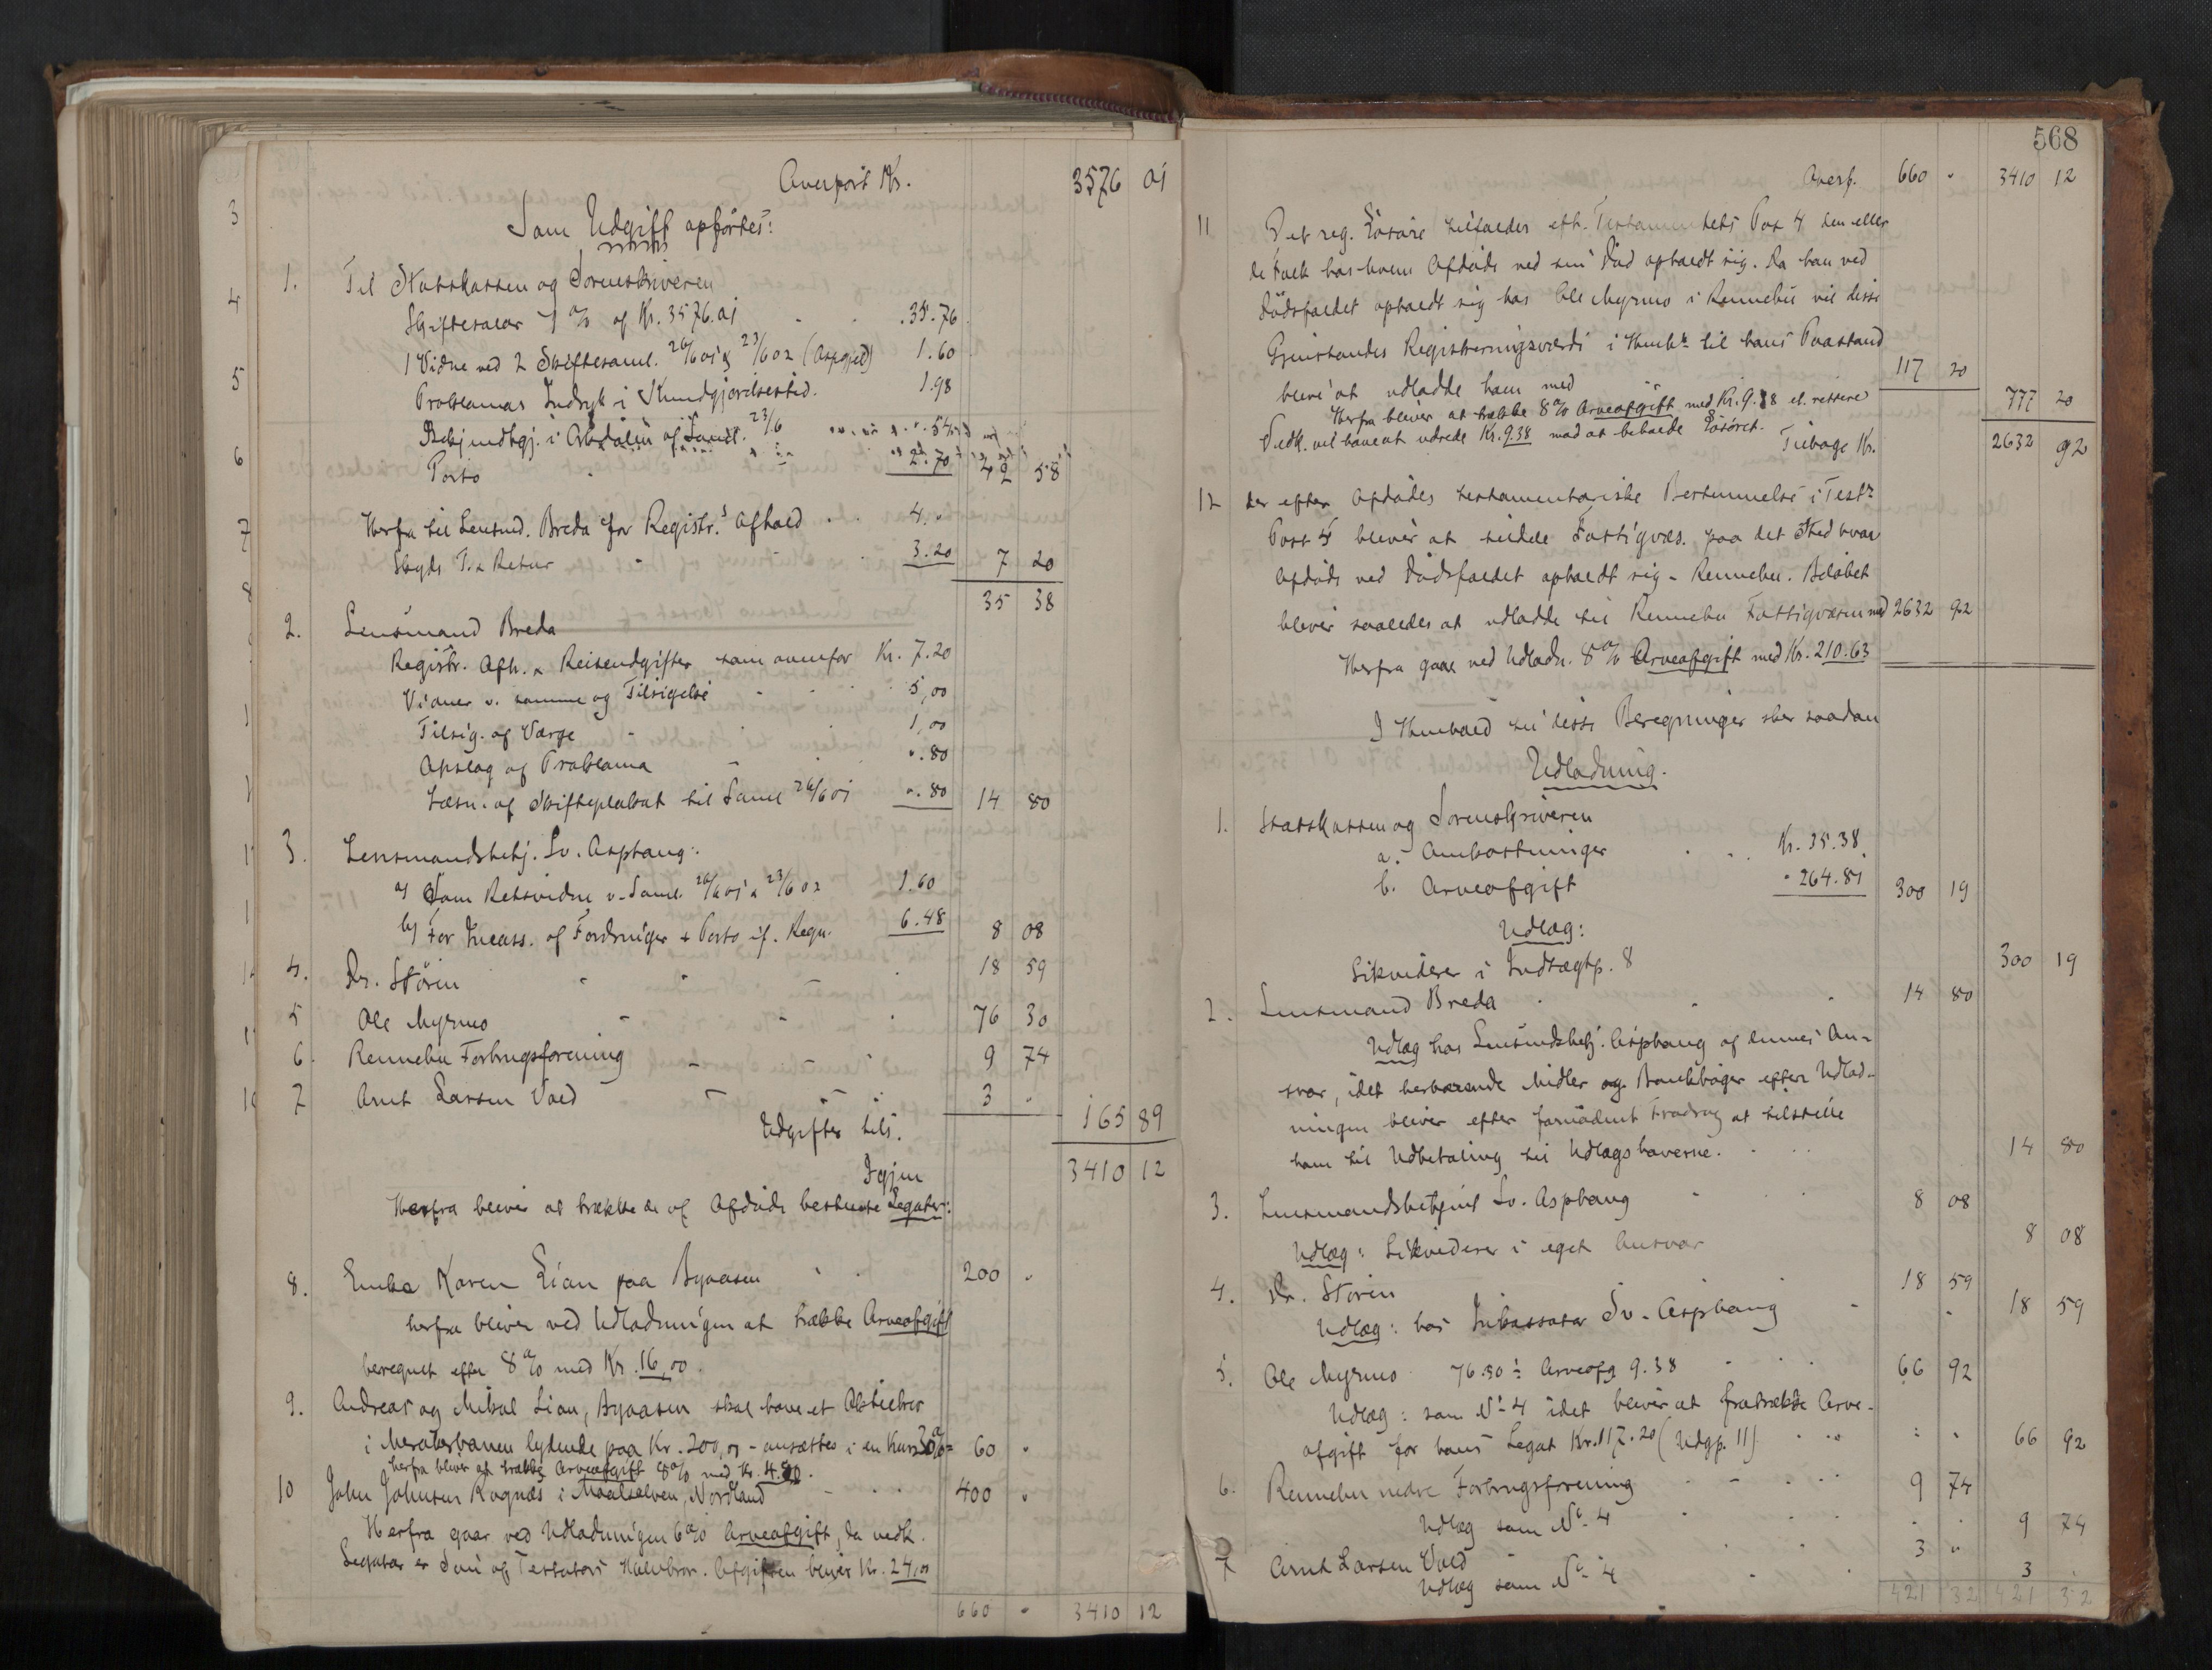 Overført Kr. 3576 01
Som Udgift opføres:
1. Til Statskassen og Sorenskriveren
Skiftesalær 1 % af Kr. 3576.01 35.76
1 Vidne ved 2 Skiftesaml. 26/6 01 & 23/6 02 (Aspgjed) 1.60
Proklamas Indryk. i Kundgjørelsestid. 1.98
Bekjendtgj. i Arkdølen af Saml. 23/6 " 54
Porto 2.70 42 58
Herfra til Lensmd. Breda for Registr.s Afhold 4. "
Skyds T. & Retur 3.20 7 20
35 38
2. Lensmand Breda
Registr. Afh. & Reiseudgifter som ovenfor Kr. 7.20
Vidner v. samme og Tilsigelse 5,00
Tilsig. af Værge 1,00
Opslag af Proklama ". 80
Læsn. af Skifteplakat til Saml 26/6 01 ". 80 14 80
3. Lensmandsbetj. Sv. Asphaug:
a) Som Retsvidne v. Saml. 26/6 01 & 23/6 02 1.60
b) For Incass. af Fordringer & Porto if. Regn. 6.48 8 08
4. Dr. Støren 18 59
5 Ole Myrmo 76 30
6. Rennebu Forbrugsforening 9 74
7 Arnt Larsen Vold 3 "
Udgifter tils. 165 89
Igjen 3410 12
Herfra bliver at trække de af Afdøde bestemte Legater:
8. Enke Karen Lian paa Byaasen 200 "
herfra bliver ved Udlodningen at trække Arveafgift
beregnet efter 8 % med Kr. 16,00.
9. Andreas og Mikal Lian, Byaasen skal have et Aktiebrev
i Merakerbanen lydende paa Kr. 200,00 - ansættes i en Kurs 30% = 60 "
herfra bliver at trække Arveafgift 8% med Kr. 4.80.
10 John Johnsen Rognæs i Maalselven, Nordland 400 "
Herfra gaar ved Udlodningen 6% Arveafgift, da vedk.
Legatar er Søn af Testators Halvbror. Afgiften bliver Kr. 24,00
660 " 3410 12
568
Overf. 660 " 3410 12
11 Det reg. Løsøre tilfalder efter Testamentets Post 4 den eller
de Folk hos hvem Afdøde ved sin Død opholdt sig. Da han ved
Dødsfaldet opholdt sig hos Ole Myrmo i Rennebu vil disse
Gjenstandes Registreringsværdi i Henh. til hans Paastand
blive at udlodde ham med 117 20
777 20
Herfra bliver at trække 8% Arveafgift med Kr. 9.38 el. rettere
Vedk. vil have at udrede Kr. 9.38 mod at beholde Løsøret.
Tilbage Kr. 2632 92
12 der efter Afdødes testamentariske Bestemmelse i Test.
Post 4 bliver at tildele Fattigvæs. paa det Sted hvor
Afdøde ved Dødsfaldet opholdt sig - Rennebu. Beløbet
bliver saaledes at udlodde til Rennebu Fattigvæsen med 2632 92
Herfra gaar ved Udlodn. 8% Arveafgift med Kr. 210.63
I Henhold til disse Beregninger sker saadan
Udlodning.
1. Statskassen og Sorenskriveren
a. Omkostninger Kr. 35.38
b. Arveafgift " 264.81 300 19
Udlæg:
Likviderer i Indtægtp. 8 300 19
2. Lensmand Breda 14 80
Udlæg hos Lensmdsbetj. Asphaug af dennes An-
svar, idet herværende Midler og Bankbøger efter Udlod-
ningen bliver efter fornødent Fradrag at tilstille
ham til Udbetaling til Udlægshaverne. 14 80
3. Lensmandsbetjent Sv. Asphaug 8 08
Udlæg: Likviderer i eget Ansvar 8 08
4. Dr. Støren 18 59
Udlæg: hos Inkassator Sv. Asphaug 18 59
5. Ole Myrmo 76.30 ÷ Arveafg 9.38 66 92
Udlæg: som No 4 idet bliver at fratrække Arve-
afgift for hans Legat Kr. 117.20 (Udgp. 11) 66 92
6. Rennebu nedre Forbrugsforening 9 74
Udlæg som No 4 9 74
7 Arnt Larsen Vold 3 "
Udlæg som No 4 3
421 32 421 32